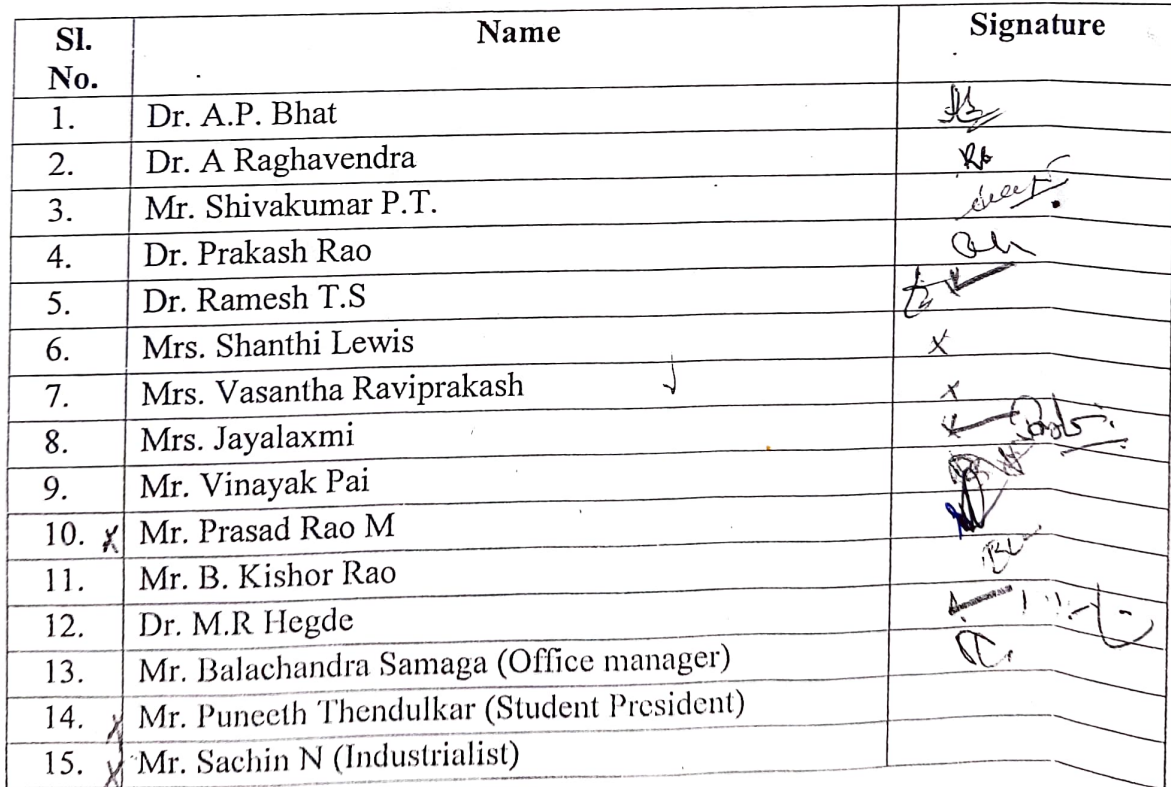 Sl. No. Name Signature
1. Dr. A.P. Bhat
2. Dr. A Raghavendra
3. Mr. Shivakumar P.T.
4. Dr. Prakash Rao
5. Dr. Ramesh T.S
6. Mrs. Shanthi Lewis x
7. Mrs. Vasantha Raviprakash x
8. Mrs. Jayalaxmi
9. Mr. Vinayak Pai
10. x Mr. Prasad Rao M
11. Mr. B. Kishor Rao
12. Dr. M.R Hegde
13. Mr. Balachandra Samaga (Office manager)
14. x Mr. Puneeth Thendulkar (Student President)
15. x Mr. Sachin N (Industrialist)